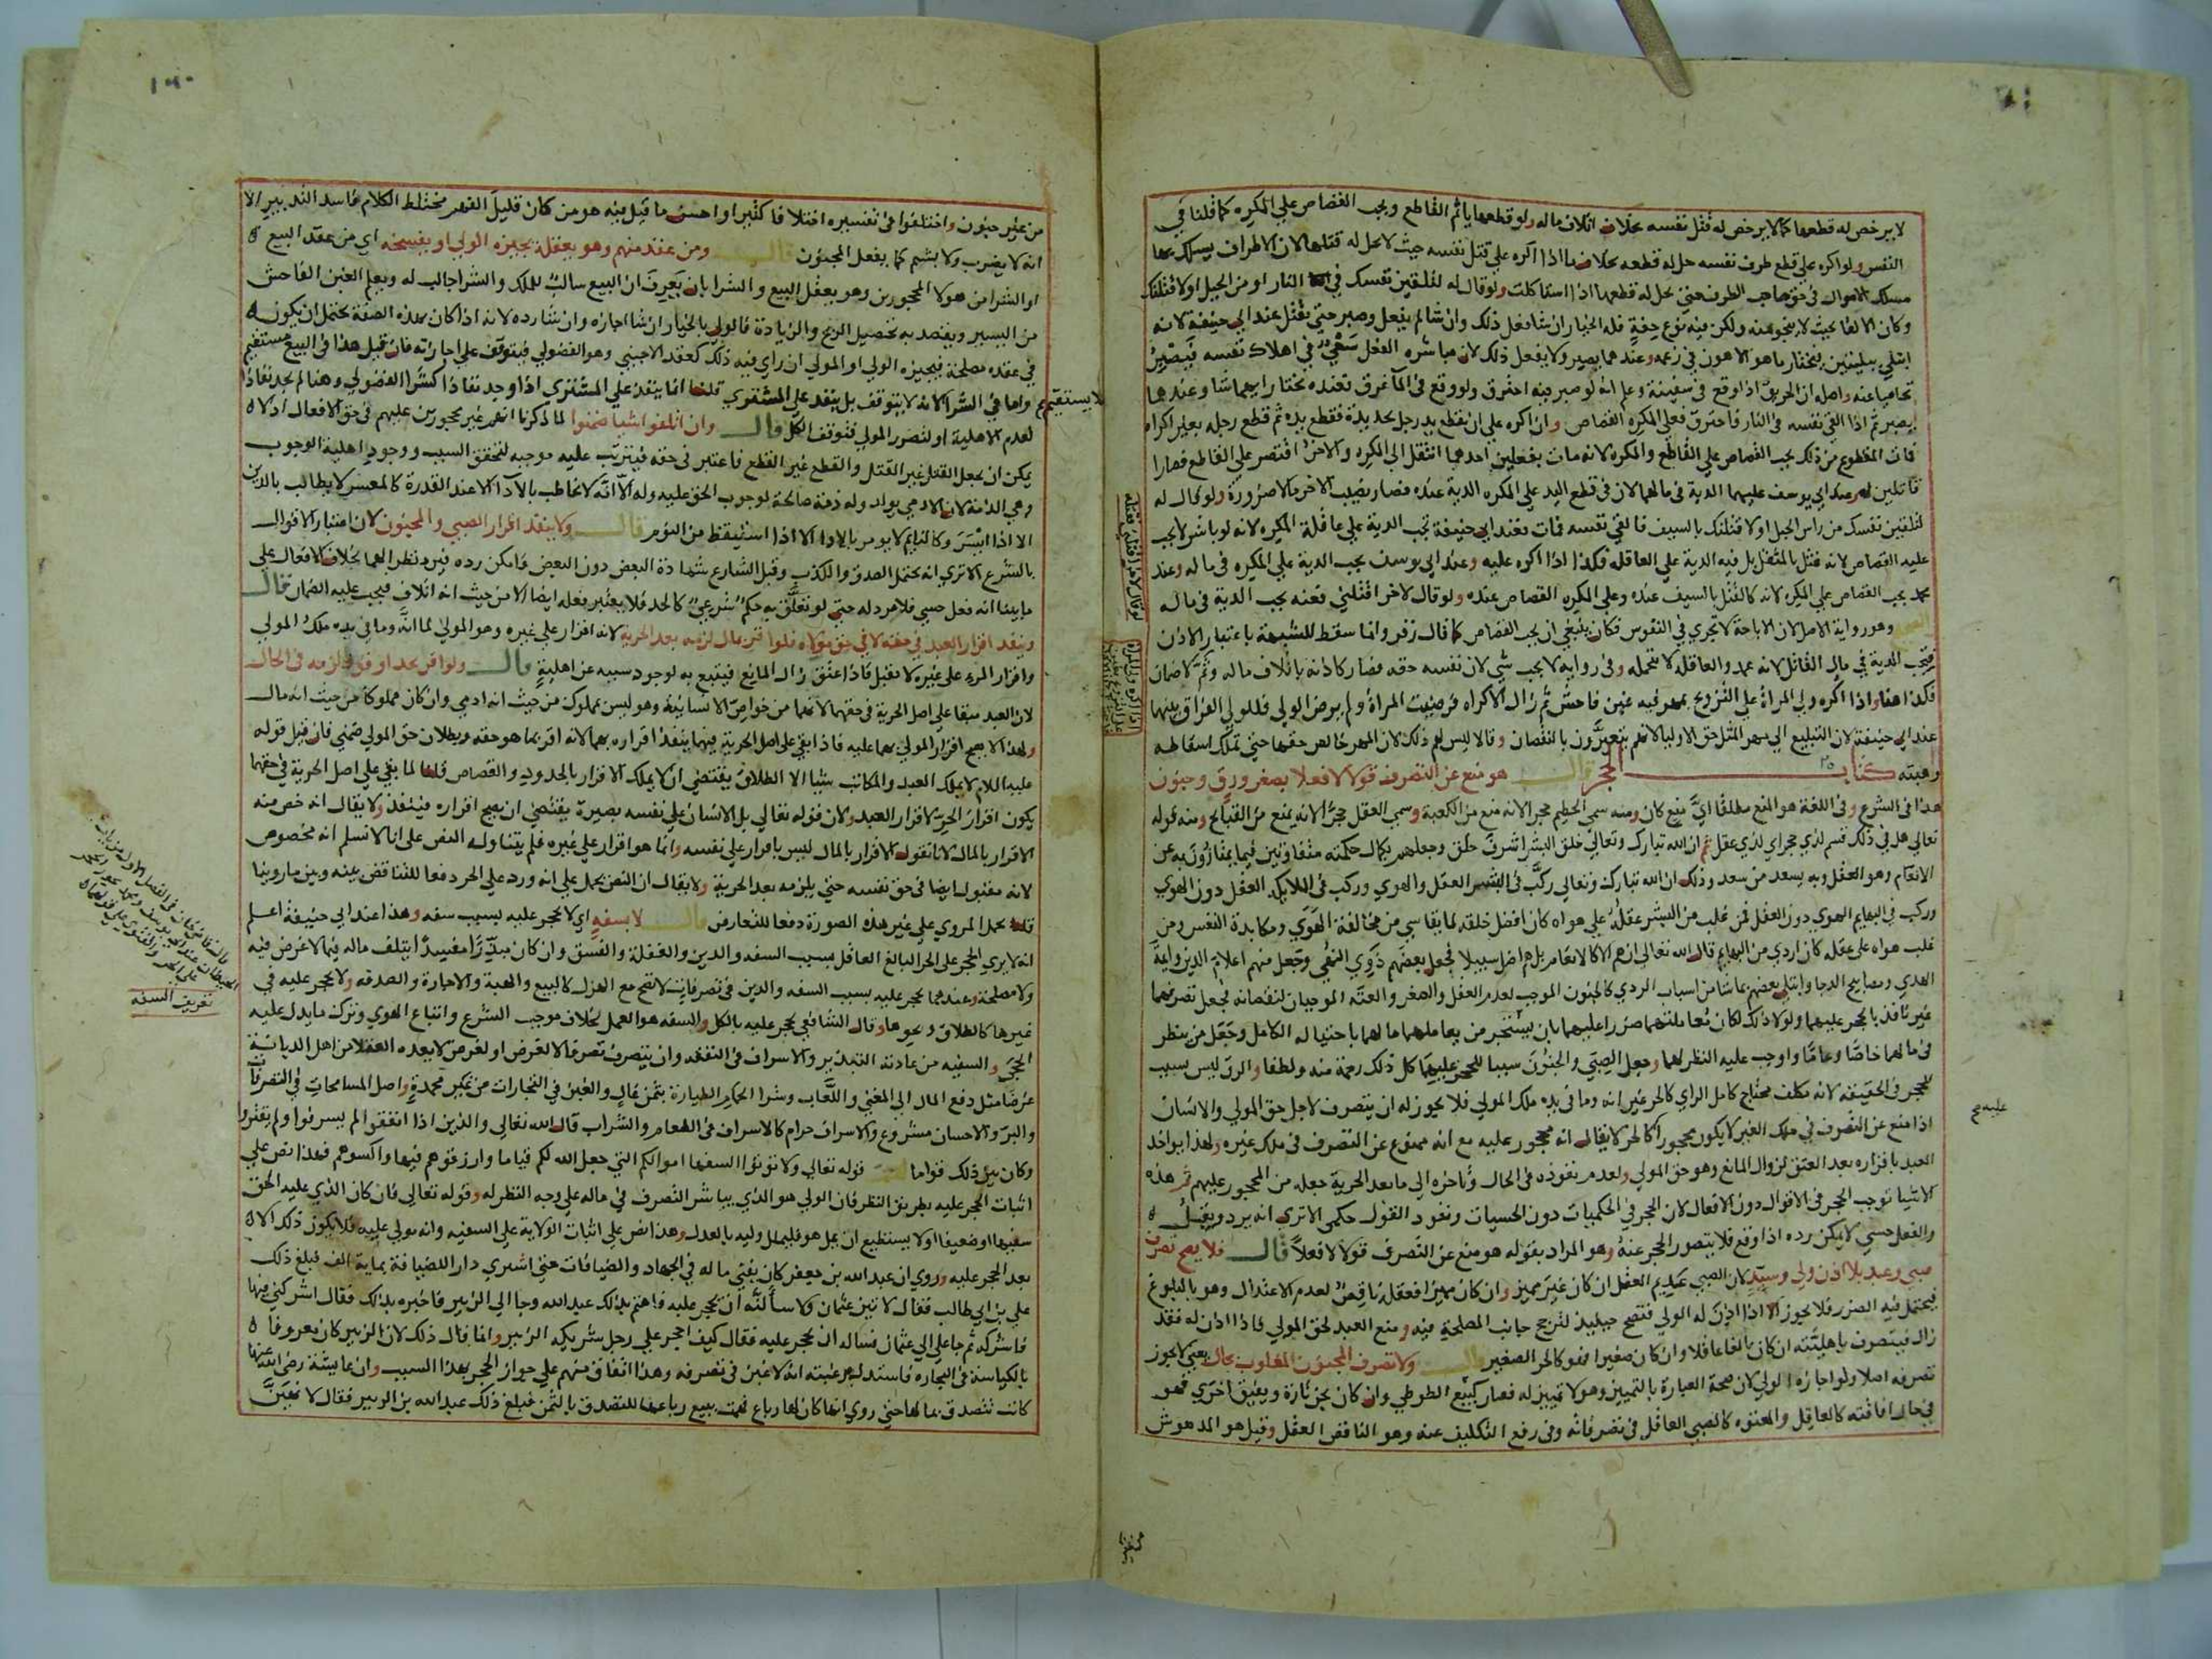 لا يرخص له قطعها كما لا يرخص له قتل نفسه بخلاف اتلاف ماله ولو قطعها ياثم القاطع ويجب القصاص علي المكره كما قلنا في
النفس ولو اكره علي قطع طرف نفسه حل له قطعه بخلاف ما اذا اكره علي قتل نفسه حيث لا يحل له قتلها لان الاطراف يسلك بها
مسلك الاموال في حق صاحب الطرف حتي يحل له قطعها اذا استاكلت ولو قال له لتلقين نفسك في النار او من الجبل او لاقتلنك
وكان الالقا بحيث لا ينجو منه ولكن فيه نوع خفة فله الخيار ان شا فعل ذلك وان شا لم يفعل وصبر حتي يقتل عند ابي حنيفة لانه
ابتلي ببليتين فيختار ما هو الاهون في زعمه وعندهما يصبر ولا يفعل ذلك لان مباشرة الفعل سعي في اهلاك نفسه فيصبر
تحاميا عنه واصله ان الحريق اذا وقع في سفينة وعلم انه لو صبر فيه احترق ولو وقع في الما غرق فعنده يختار ايهما شا وعندهما
يصبر ثم اذا القي نفسه في النار فاحترق فعلي المكره القصاص وان اكره علي ان يقطع يد رجل بحديدة فقطع يده ثم قطع رجله بغير اكراه
فمات المقطوع من ذلك يجب القصاص علي القاطع والمكره لانه مات بفعلين احدهما انتقل الي المكره والاخر اقتصر علي القاطع فصارا
قاتلين له وعند ابي يوسف عليهما الدية في مالهما لان في قطع اليد علي المكره الدية عنده فصار نصيب الاخر مالا ضرورة ولو قال له
لتلقين نفسك من راس الجبل او لاقتلنك بالسيف فالقي نفسه فمات فعند ابي حنيفة تجب الدية علي عاقلة المكره لانه لو باشر لا يجب
عليه القصاص لانه قتل بالمثقل بل فيه الدية علي العاقلة فكذا اذا اكره عليه وعند ابي يوسف يجب الدية علي المكره في ماله وعند
محمد يجب القصاص علي المكره لانه كالقتل بالسيف عنده وعلي المكره القصاص عنده ولو قال لاخر اقتلني فعنه يجب الدية في ماله
وهو رواية الاصل لان الاباحة لا تجري في النفوس فكان ينبغي ان يجب القصاص كما قال زفر وانما سقط للشبهة باعتبار الاذن
فتجب الدية في مال القاتل لانه عمد والعاقلة لا تتحمله وفي رواية لا يجب شي لان نفسه حقه فصار كاذنه باتلاف ماله وثم لا ضمان
فكذا هنا واذا اكره ولي المراة علي التزويج بمهر فيه غبن فاحش ثم زال الاكراه فرضيت المراة ولم يرض الولي فللولي الفراق بينهما
عند ابي حنيفة لان التبليغ الي مهر المثل حق الاوليا لانهم يتعيرون بالنقصان وقالا ليس لهم ذلك لان المهر خالص حقها حتي تملك اسقاطه
وهبته كتاب الحجر قال هو منع عن التصرف قولا لا فعلا بصغر ورق وجنون
هذا في الشرع وفي اللغة هو المنع مطلقا اي منع كان ومنه سمي الحطيم حجرا لانه منع من الكعبة وسمي العقل حجرا لانه يمنع من القبائح ومنه قوله
تعالي هل في ذلك قسم لذي حجر اي لذي عقل ثم ان الله تبارك وتعالي خلق البشر اشرف خلق وجعلهم بكمال حكمته متفاوتين فيما يمتازون به عن
الانعام وهو العقل وبه يسعد من سعد وذلك ان الله تبارك وتعالي ركب في البشر العقل والهوي وركب في الملايكة العقل دون الهوي
وركب في البهايم الهوي دون العقل فمن غلب من البشر عقله علي هواه كان افضل خلقه لما يقاسي من مخالفة الهوي ومكابدة النفس ومن
غلب هواه علي عقله كان اردي من البهايم قال الله تعالي ان هم الا كالانعام بل هم اضل سبيلا فجعل بعضهم ذوي النهي وجعل منهم اعلام الدين وايمة
الهدي ومصابيح الدجا وابتلي بعضهم بما شا من اسباب الردي كالجنون الموجب لعدم العقل والصغر والعته الموجبان لنقصانه فجعل تصرفهما
غير نافذ بالحجر عليهما ولولا ذلك لكان معاملتهما ضررا عليهما بان يستجر من يعاملهما مالهما باحتياله الكامل وجعل من ينظر
في مالهما خاصا وعاما واوجب عليه النظر لهما وجعل الصبي والجنون سببا للحجر عليهما كل ذلك رحمة منه ولطفا والرق ليس بسبب
للحجر في الحقيقة لانه مكلف محتاج كامل الراي كالحر غير انه وما في يده ملك المولي فلا يجوز له ان يتصرف لاجل حق المولي والانسان
اذا منع عن التصرف في ملك الغير لا يكون محجورا كالحر لا يقال انه محجور عليه مع انه ممنوع عن التصرف في ملك غيره ولهذا يواخذ
العبد باقراره بعد العتق لزوال المانع وهو حق المولي ولعدم نفوذه في الحال وتاخره الي ما بعد الحرية جعله من المحجور عليهم ثم هذه
الاشيا توجب الحجر في الاقوال دون الافعال لان الحجر في الحكميات دون الحسيات ونفوذ القول حكمي الا تري انه يرد ويقبل
والفعل حسي لا يمكن رده اذا وقع فلا يتصور الحجر عنه وهو المراد بقوله هو منع عن التصرف قولا لا فعلا قال فلا يصح تصرف
صبي وعبد بلا اذن ولي وسيد لان الصبي عديم العقل ان كان غير مميز وان كان مميزا فعقله ناقص لعدم الاعتدال وهو بالبلوغ
فيحتمل فيه الضرر فلا يجوز الا اذا اذن له الولي فتصح حينيذ لترجح جانب المصلحة فيه ومنع العبد لحق المولي فاذا اذن له فقد
زال فيتصرف باهليته ان كان بالغا عاقلا وان كان صغيرا فهو كالحر الصغير قال ولا تصرف المجنون المغلوب بحال يعني لا يجوز
تصرفه اصلا ولو اجازه الولي لان صحة العبارة بالتمييز وهو لا تمييز له فصار كبيع الطوطي وان كان يجن تارة ويفيق اخري فهو
في حال افاقته كالعاقل والمعتوه كالصبي العاقل في تصرفاته وفي رفع التكليف عنه وهو الناقص العقل وقيل هو المدهوش
لو قال لاخر اقتلني فقتله
عليه صح
من غير جنون واختلفوا في تفسيره اختلافا كثيرا واحسن ما قيل فيه هو من كان قليل الفهم مختلط الكلام فاسد التدبير الا
انه لا يضرب ولا يشتم كما يفعل المجنون قال ومن عقد منهم وهو يعقله يجيزه الولي او يفسخه اي من عقد البيع
او الشرا من هولا المحجورين وهو يعقل البيع والشرا بان يعرف ان البيع سالب للملك والشرا جالب له ويعلم الغبن الفاحش
من اليسير ويقصد به تحصيل الربح والزيادة فالولي بالخيار ان شا اجازه وان شا رده لانه اذا كان بهذه الصفة يحتمل ان يكون
في عقده مصلحة فيجيزه الولي او المولي ان راي فيه ذلك كعقد الاجنبي وهو الفضولي فيتوقف علي اجازته فان قيل هذا في البيع مستقيم
واما في الشرا لانه لا يتوقف بل ينفذ علي المشتري قلنا انما ينفذ علي المشتري اذا وجد نفاذا كشرا الفضولي وهنا لم يجد نفاذا
لا يستقيم
لعدم الاهلية او لتضرر المولي فتوقف الكل قال وان اتلفوا شيا ضمنوا لما ذكرنا انهم غير محجورين عليهم في حق الافعال اذ لا
يمكن ان يجعل القتل غير القتل والقطع غير القطع فاعتبر في حقه فيترتب عليه موجبه لتحقق السبب ووجود اهلية الوجوب
وهي الذمة لان الادمي يولد وله ذمة صالحة لوجوب الحق عليه وله الا انه لا يخاطب بالادا الا عند القدرة كالمعسر لا يطالب بالدين
الا اذا ايسر وكالنايم لا يومر بالادا الا اذا استيقظ من النوم قال ولا ينفذ اقرار الصبي والمجنون لان اعتبار الاقوال
بالشرع الا تري انه يحتمل الصدق والكذب وقبل الشارع شهادة البعض دون البعض فامكن رده فيرد نظرا لهما بخلاف الافعال علي
ما بينا انه فعل حسي فلا مرد له حتي لو تعلق به حكم شرعي كالحد فلا يعتبر فعله ايضا الا من حيث انه اتلاف فيجب عليه الضمان قال
وينفذ اقرار العبد في حقه لا في حق مولاه فلو اقر بمال لزمه بعد الحرية لانه اقرار علي غيره وهو المولي لما انه وما في يده ملك المولي
واقرار المرء علي غيره لا يقبل فاذا عتق زال المانع فيتبع به لوجود سببه عن اهلية قال ولو اقر بحد او قود لزمه في الحال
لان العبد مبقا علي اصل الحرية في حقهما لانهما من خواص الانسانية وهو ليس بمملوك من حيث انه ادمي وان كان مملوكا من حيث انه مال
ولهذا لا يصح اقرار المولي بهما عليه فاذا بقي علي اصل الحرية فيهما ينفذ اقراره بهما لانه اقر بما هو حقه وبطلان حق المولي ضمني فان قيل قوله
عليه السلام لا يملك العبد والمكاتب شيا الا الطلاق يقتضي ان لا يملك الاقرار بالحدود والقصاص قلنا لما بقي علي اصل الحرية في حقهما
يكون اقراره اقرار الحر لا اقرار العبد ولان قوله تعالي بل الانسان علي نفسه بصيرة يقتضي ان يصح اقراره فينفذ ولا يقال انه خص منه
الاقرار بالمال لانا نقول الاقرار بالمال ليس باقرار علي نفسه وانما هو اقرار علي غيره فلم يتناوله النص علي انا لا نسلم انه مخصوص
لانه مقبول ايضا في حق نفسه حتي يلزمه بعد الحرية ولا يقال ان النص يحمل علي انه ورد علي الحر دفعا للتناقض بينه وبين ما روينا
قلنا يحمل المروي علي غير هذه الصورة دفعا للتعارض قال لا بسفه اي لا يحجر عليه بسبب سفه وهذا عند ابي حنيفة اعلم
انه لا يري الحجر علي الحر البالغ العاقل بسبب السفه والدين والغفلة والفسق وان كان مبذرا مفسدا يتلف ماله فيما لا غرض فيه
ولا مصلحة وعندهما يحجر عليه بسبب السفه والدين في تصرفات لا تصح مع الهزل كالبيع والهبة والاجارة والصدقة ولا يحجر عليه في
غيرها كالطلاق ونحوها وقال الشافعي يحجر عليه بالكل والسفه هو العمل بخلاف موجب الشرع واتباع الهوي وترك ما يدل عليه
الحجي والسفيه من عادته التبذير والاسراف في النفقة وان يتصرف تصرفا لا لغرض او لغرض لا يعده العقلا من اهل الديانة
غرضا مثل دفع المال الي المغني واللعاب وشرا الحمام الطيارة بثمن غال والغبن في التجارات من غير محمدة واصل المسامحات في التصرفات
والبر والاحسان مشروع والاسراف حرام كالاسراف في الطعام والشراب قال الله تعالي والذين اذا انفقوا لم يسرفوا ولم يقتروا
وكان بين ذلك قواما قوله تعالي ولا توتوا السفها اموالكم التي جعل الله لكم قياما وارزقوهم فيها واكسوهم فهذا نص علي
اثبات الحجر عليه بطريق النظر فان الولي هو الذي يباشر التصرف في ماله علي وجه النظر له وقوله تعالي فان كان الذي عليه الحق
سفيها او ضعيفا او لا يستطيع ان يمل هو فليملل وليه بالعدل وهذا نص علي اثبات الولاية علي السفيه وانه مولي عليه فلا يكون ذلك الا
بعد الحجر عليه وروي ان عبد الله بن جعفر كان يفني ماله في الجهاد والضيافات حتي اشتري دار للضيافة بماية الف فبلغ ذلك
علي بن ابي طالب فقال لاتين عثمان ولاسالنه ان يحجر عليه فاهتم بذلك عبد الله وجا الي الزبير فاخبره بذلك فقال اشركني فيها
فاشركه ثم جا علي الي عثمان فساله ان يحجر عليه فقال كيف احجر علي رجل شريكه الزبير وانما قال ذلك لان الزبير كان معروفا
بالكياسة في التجارة فاستدل برغبته انه لا غبن في تصرفه وهذا اتفاق منهم علي جواز الحجر بهذا السبب وان عايشة رضي الله عنها
كانت تتصدق بمالها حتي روي انها كان لها رباع فهمت ببيع رباعها للتصدق بالثمن فبلغ ذلك عبد الله بن الزبير فقال لا
تعريف السفه